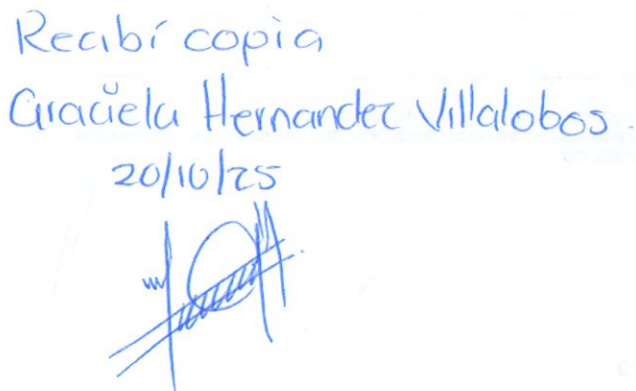 Recibí copia
Graciela Hernandez Villalobos.
20/10/25